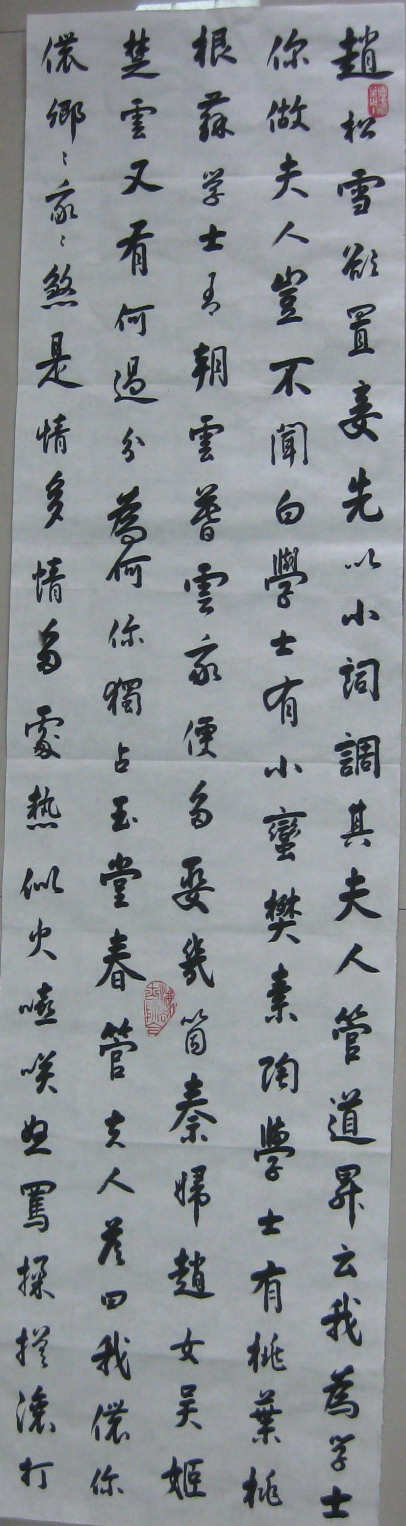 趙松雪欲置妾先以小詞調其夫人管道昇云我為学士
你做夫人豈不聞白學士有小蠻樊素陶學士有桃葉桃
根蘇学士有朝雲暮雲我便多娶幾箇秦婦趙女吴姬
楚雲又有何過分為何你獨占玉堂春管夫人答曰我儂你
儂卿〻我〻煞是情多情多處熱似火嘻笑怒罵揉搓滾打